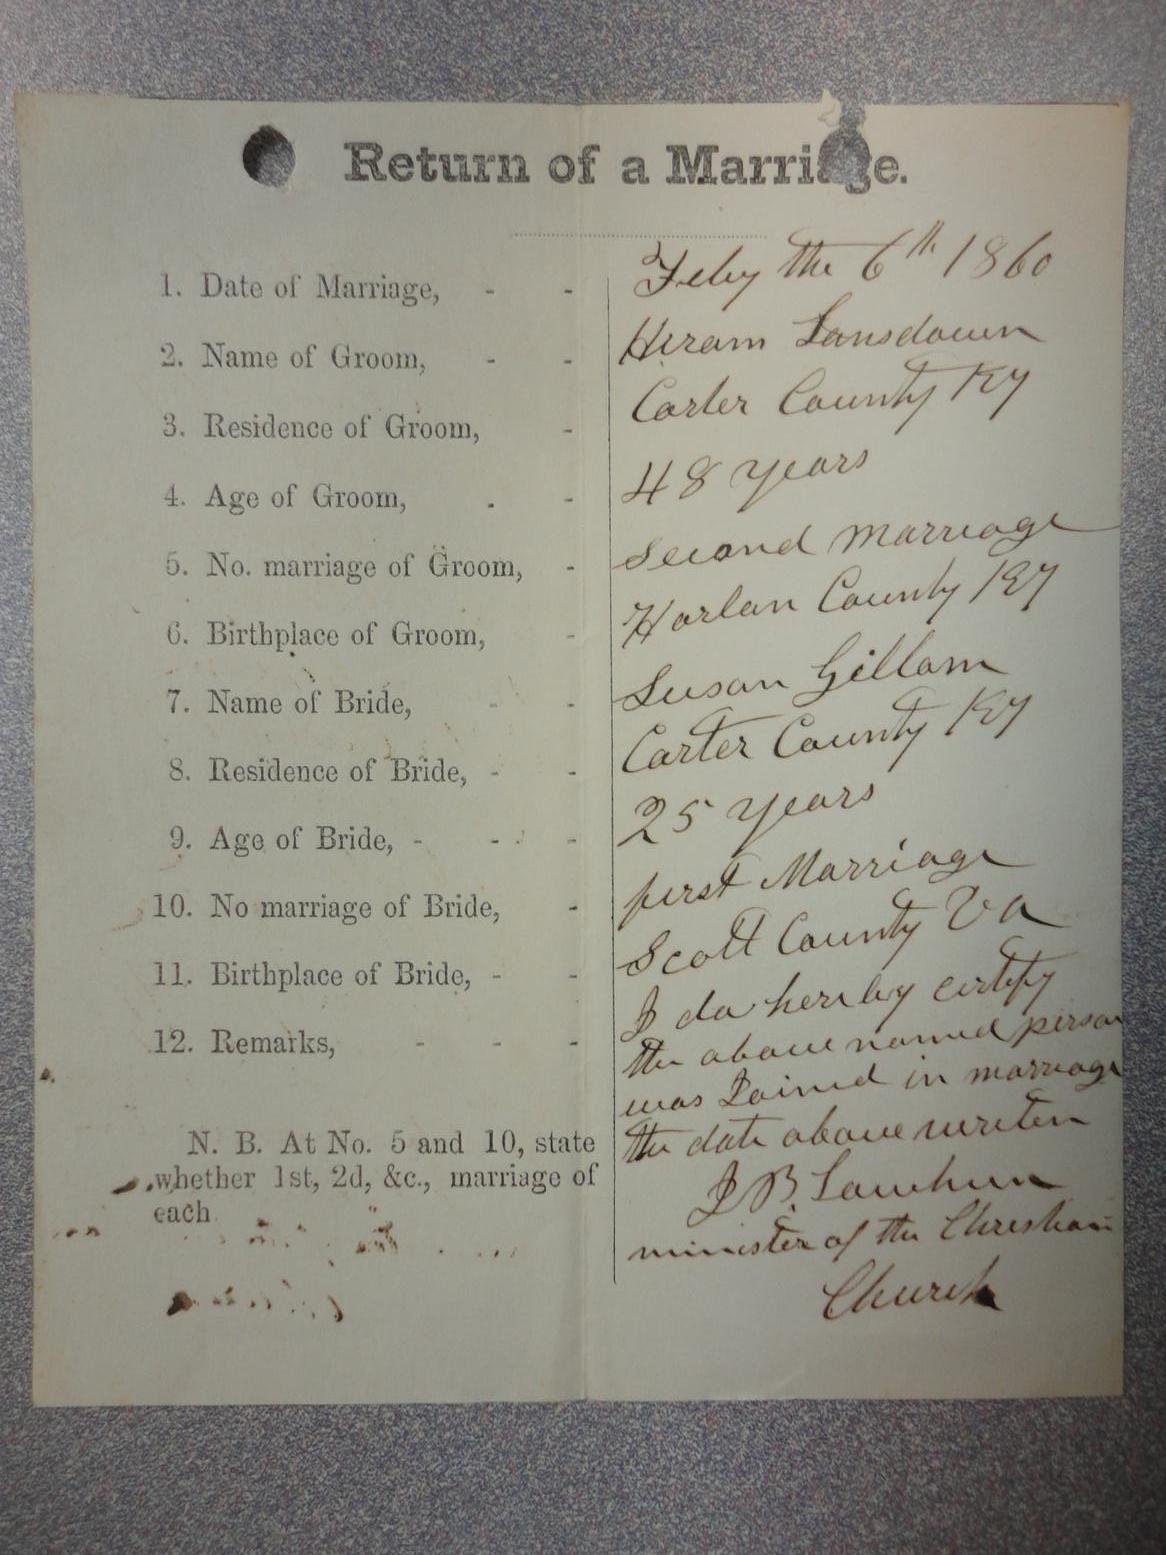 Return of a Marriage.
1. Date of Marriage, - - Feby the 6th 1860
2. Name of Groom, - - Hiram Lansdown
3. Residence of Groom, - Carter County Ky
4. Age of Groom, - - 48 years
5. No. marriage of Groom, - Second marriage
6. Birthplace of Groom, - Harlan County Ky
7. Name of Bride, - - Susan Gillam
8. Residence of Bride, - - Carter County Ky
9. Age of Bride, - - - 25 years
10. No marriage of Bride, - first Marriage
11. Birthplace of Bride, - - Scott County Va
12. Remarks, - - - I do hereby certify
the above named person
was Joined in marriage
the date above writen
N. B. At No. 5 and 10, state
whether 1st, 2d, &c., marriage of
each
J B. Lawhun
minister of the Christian
Church